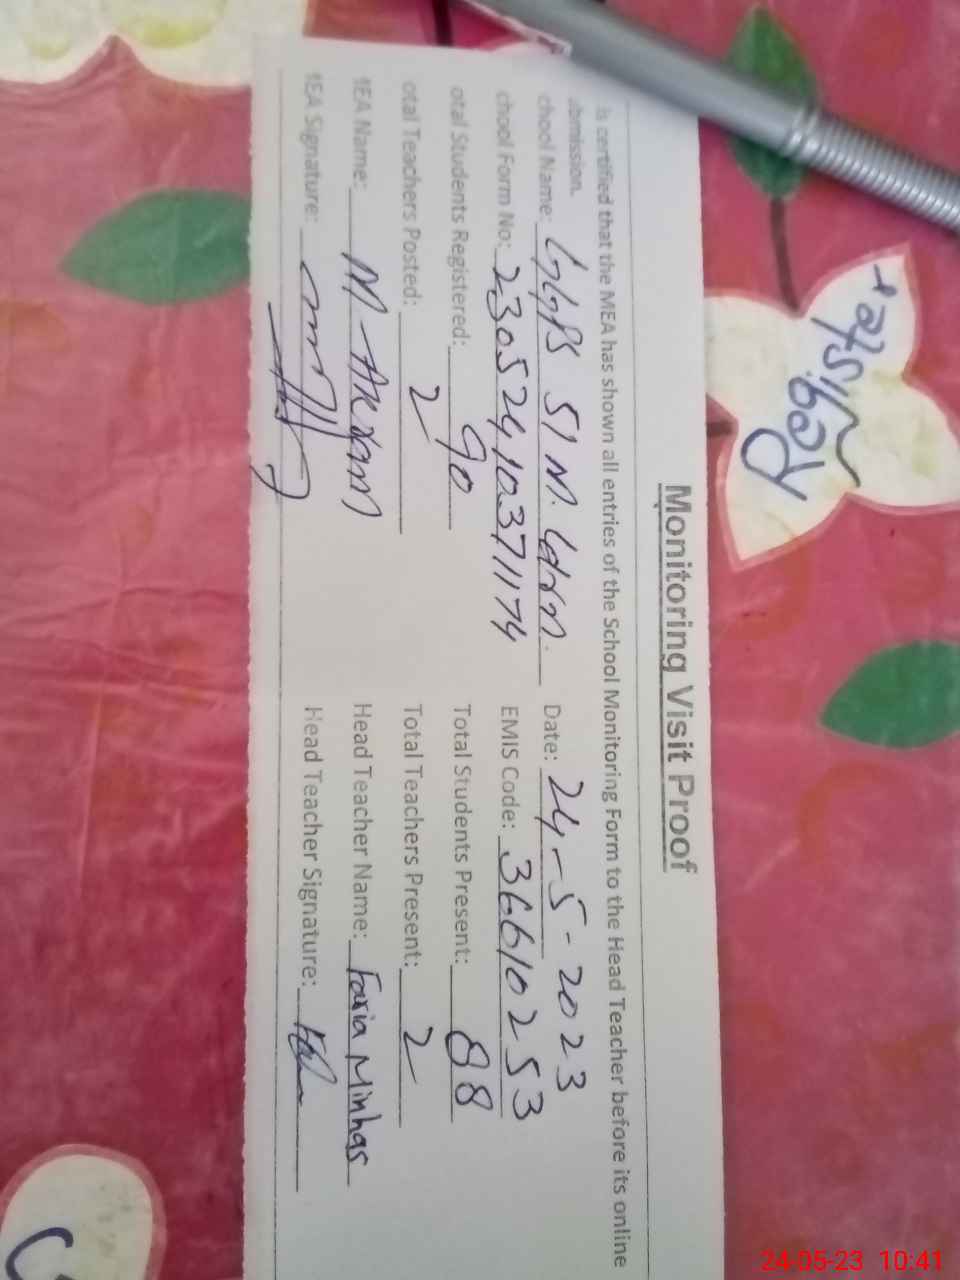 Monitoring Visit Proof
is certified that the MEA has shown all entries of the School Monitoring Form to the Head Teacher before its online
bmission.
chool Name: GGPS 51 M. Date: 24-5-2023
chool Form No: 23052410371174 EMIS Code: 36610253
otal Students Registered: 90 Total Students Present: 88
otal Teachers Posted: 2 Total Teachers Present: 2
EA Name: M. Akram Head Teacher Name: Faria Minhas
EA Signature: Head Teacher Signature:
Register
24-05-23 10:41